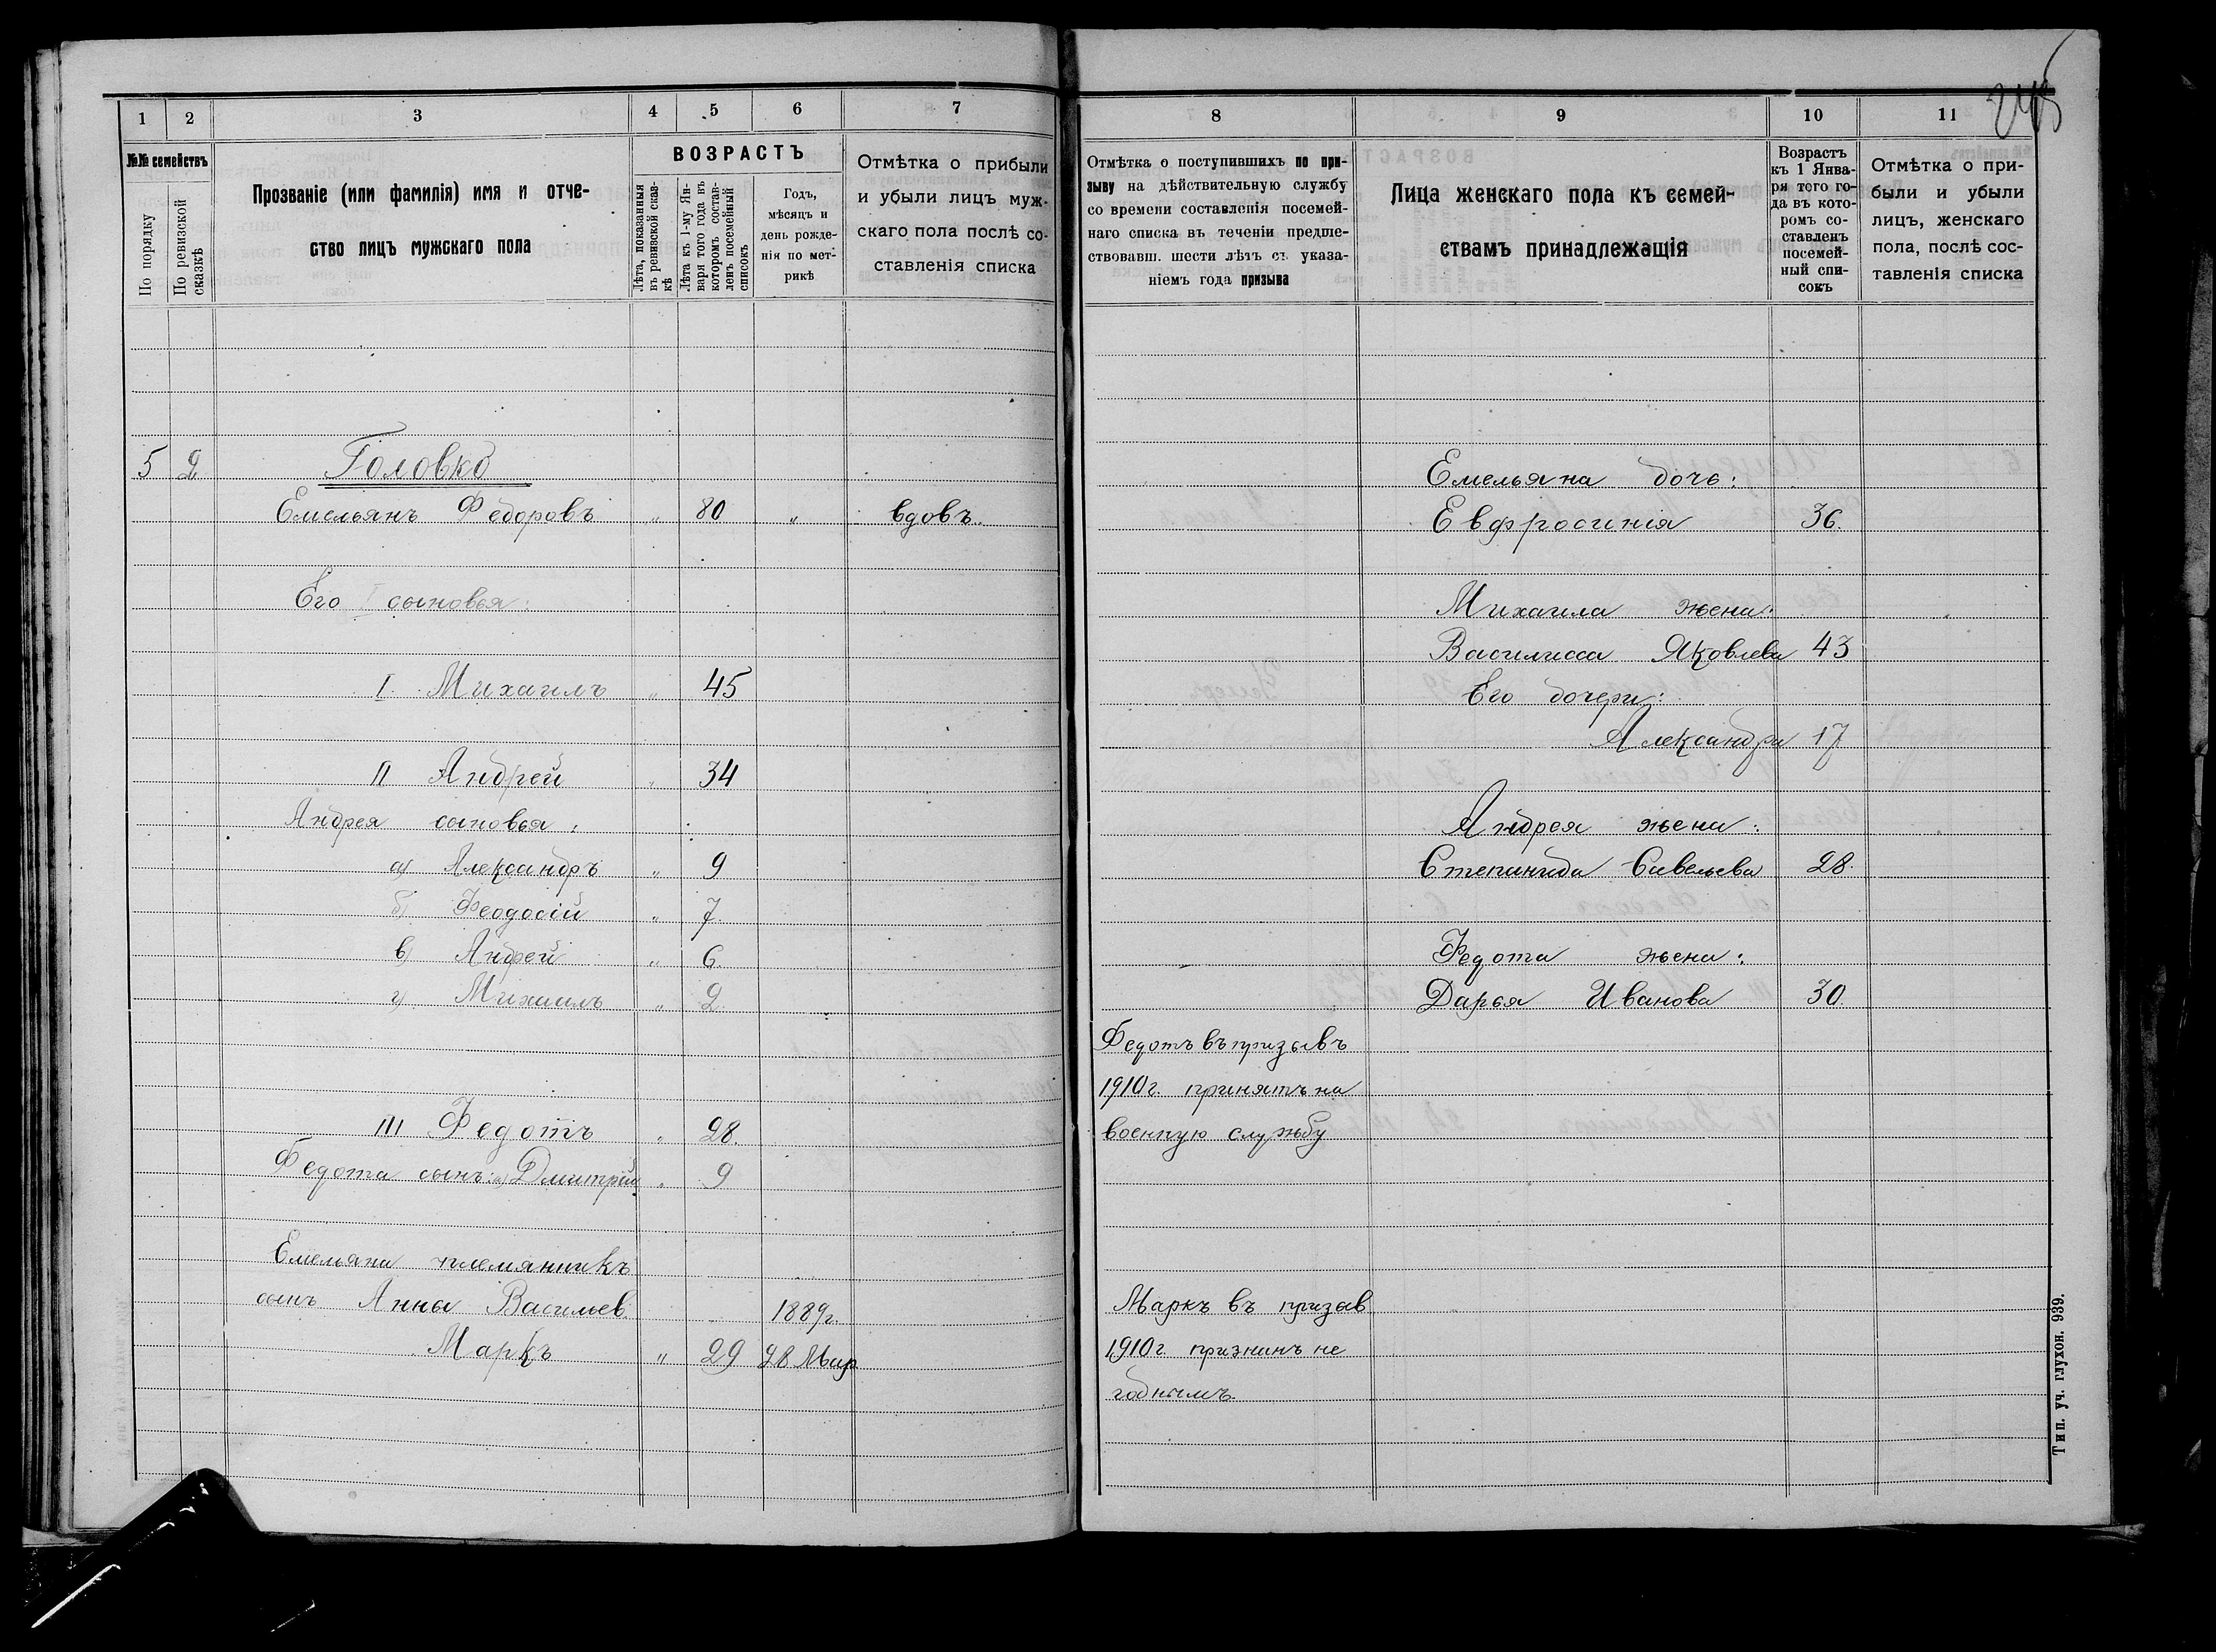 245
1 2 3 4 5 6 7
№№ семействъ
По порядку
По ревизской сказкѣ
Прозваніе (или фамилія) имя и отче-
ство лицъ мужскаго пола
ВОЗРАСТЪ
Лѣта, показанныя въ ревизской сказ-кѣ
Лѣта къ 1-му Ян-варя того года въ которомъ состав-ленъ посемейный списокъ
Годъ,
мѣсяцъ и
день рожде-
нія по мет-
рикѣ
Отмѣтка о прибыли
и убыли лицъ муж-
скаго пола послѣ со-
ставленія списка
5 2 Головко
Емельянъ Федоровъ " 80 " вдовъ.
Его сыновья:
I. Михаилъ " 45
II Андрей " 34
Андрея сыновья:
а) Александръ " 9
б) Феодосій " 7
в) Андрей " 6
г) Михаилъ " 2
III Федотъ " 28
Федота сынъ: а) Дмитрій " 9
Емельяна племянникъ
сынъ Анны Васильев. 1889г.
Маркъ " 29 28 Мар
8 9 10 11
Отмѣтка о поступившихъ по при-
зыву на дѣйствительную службу
со времени составленія посемей-
наго списка въ теченіи предше-
ствовавш. шести лѣтъ съ указа-
ніемъ года призыва
Лица женскаго пола къ семей-
ствамъ принадлежащія
Возрастъ
къ 1 Янва-
ря того го-
да въ кото-
ромъ со-
ставленъ
посемей-
ный спи-
сокъ
Отмѣтка о при-
были и убыли
лицъ, женскаго
пола, послѣ сос-
тавленія списка
Емельяна дочь:
Евфросинія 36.
Михаила жена:
Василисса Яковлева 43
Его дочери:
Александра 17
Андрея жена:
Степанида Савельева 28.
Федота жена:
Дарья Иванова 30.
Федотъ въ призывъ
1910г. принятъ на
военную службу
Маркъ въ призыв
1910г. признанъ не
годнымъ.
Тип. уч. глухон. 939.